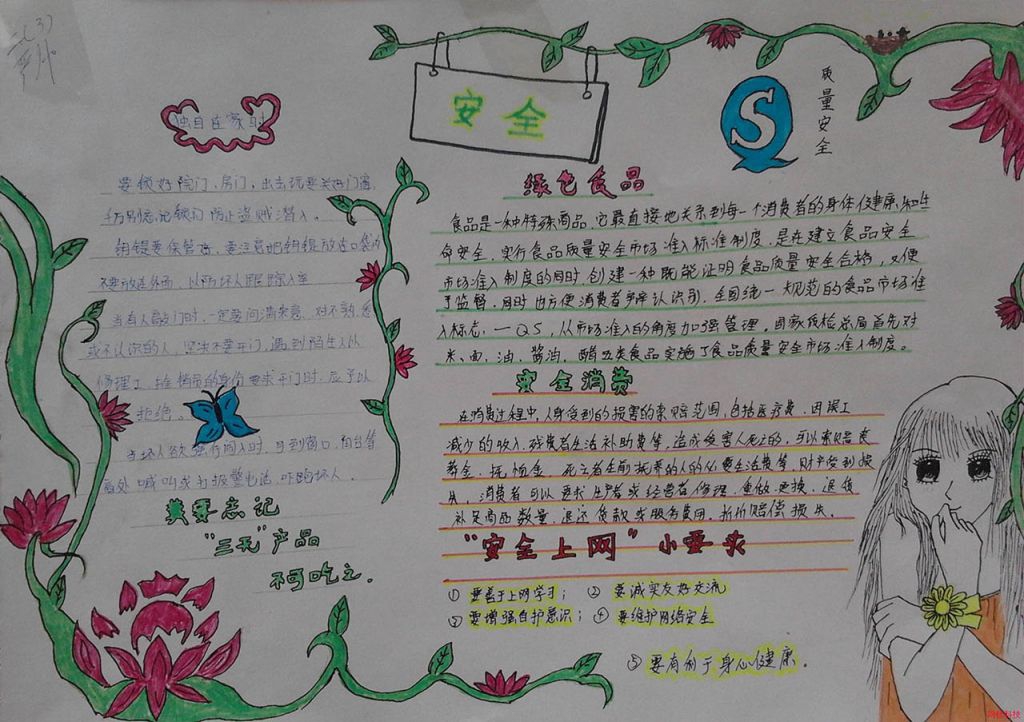 安全
质量安全
独自在家时
要锁好院门、房门，出去玩要关好门窗，
千万别忘记锁门 防止盗贼潜入。
钥匙要保管好，要注意把钥匙放在口袋内
不要放在外面，以防坏人跟踪入室
当有人敲门时，一定要问清来意，对不熟悉
或不认识的人，坚决不要开门，遇到陌生人以
修理工、推销员的身份要求开门时，应予以
拒绝。
当坏人欲强行闯入时，可到窗口、阳台等
高处喊叫或打报警电话，吓跑坏人。
莫要忘记
"三无"产品
不可吃之.
绿色食品
食品是一种特殊商品，它最直接地关系到每一个消费者的身体健康和生
命安全，实行食品质量安全市场准入标准制度，是在建立食品安全
市场准入制度的同时，创建一种既能证明食品质量安全合格，又便
于监督，同时也方便消费者辨认识别，全国统一规范的食品市场准
入标志，—QS，从市场准入的角度加强管理，国家质检总局首先对
米、面、油、酱油、醋五类食品实施了食品质量安全市场准入制度。
安全消费
在消费过程中，人身受到的损害的索赔范围，包括医疗费、因误工
减少的收入，残废者生活补助费等，造成受害人死亡的，可以索赔丧
葬金、抚恤金、死亡者生前抚养的人的必要生活费等，财产受到损
失，消费者可以要求生产者或经营者修理、重做、更换、退货
补足商品数量、退还货款或服务费用、折价赔偿损失。
"安全上网"小要求
① 要善于上网学习； ② 要诚实友好交流
③ 要增强自护意识； ④ 要维护网络安全
⑤ 要有利于身心健康。